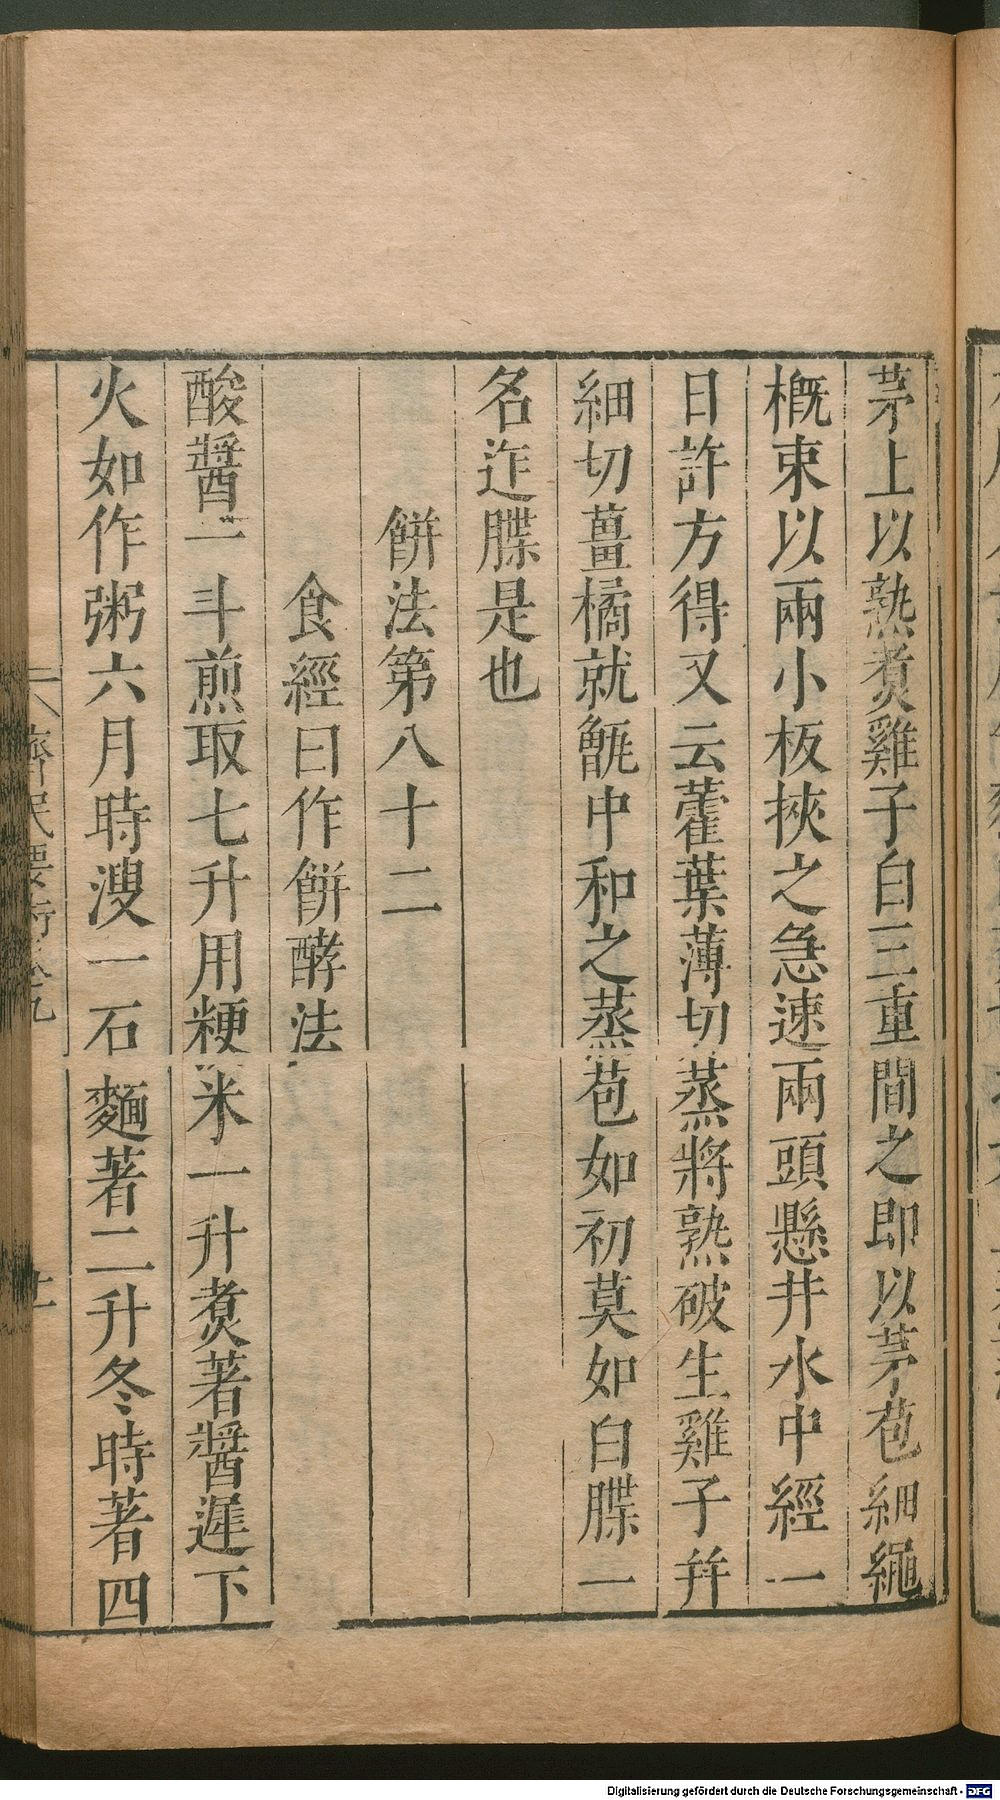 茅上以熟煮雞子白三重間之即以茅苞細繩
概束以兩小板挾之急速兩頭懸井水中經一
日許方得又云藿葉薄切蒸將熟破生雞子并
細切薑橘就甑中和之蒸苞如初莫如白牒一
名迮牒是也
餅法第八十二
食經曰作餅酵法
酸醬一斗煎取七升用粳米一升煮著醬遲下
火如作粥六月時溲一石麵著二升冬時著四
齊民要術卷九
Digitalisierung gefördert durch die Deutsche Forschungsgemeinschaft - DFG